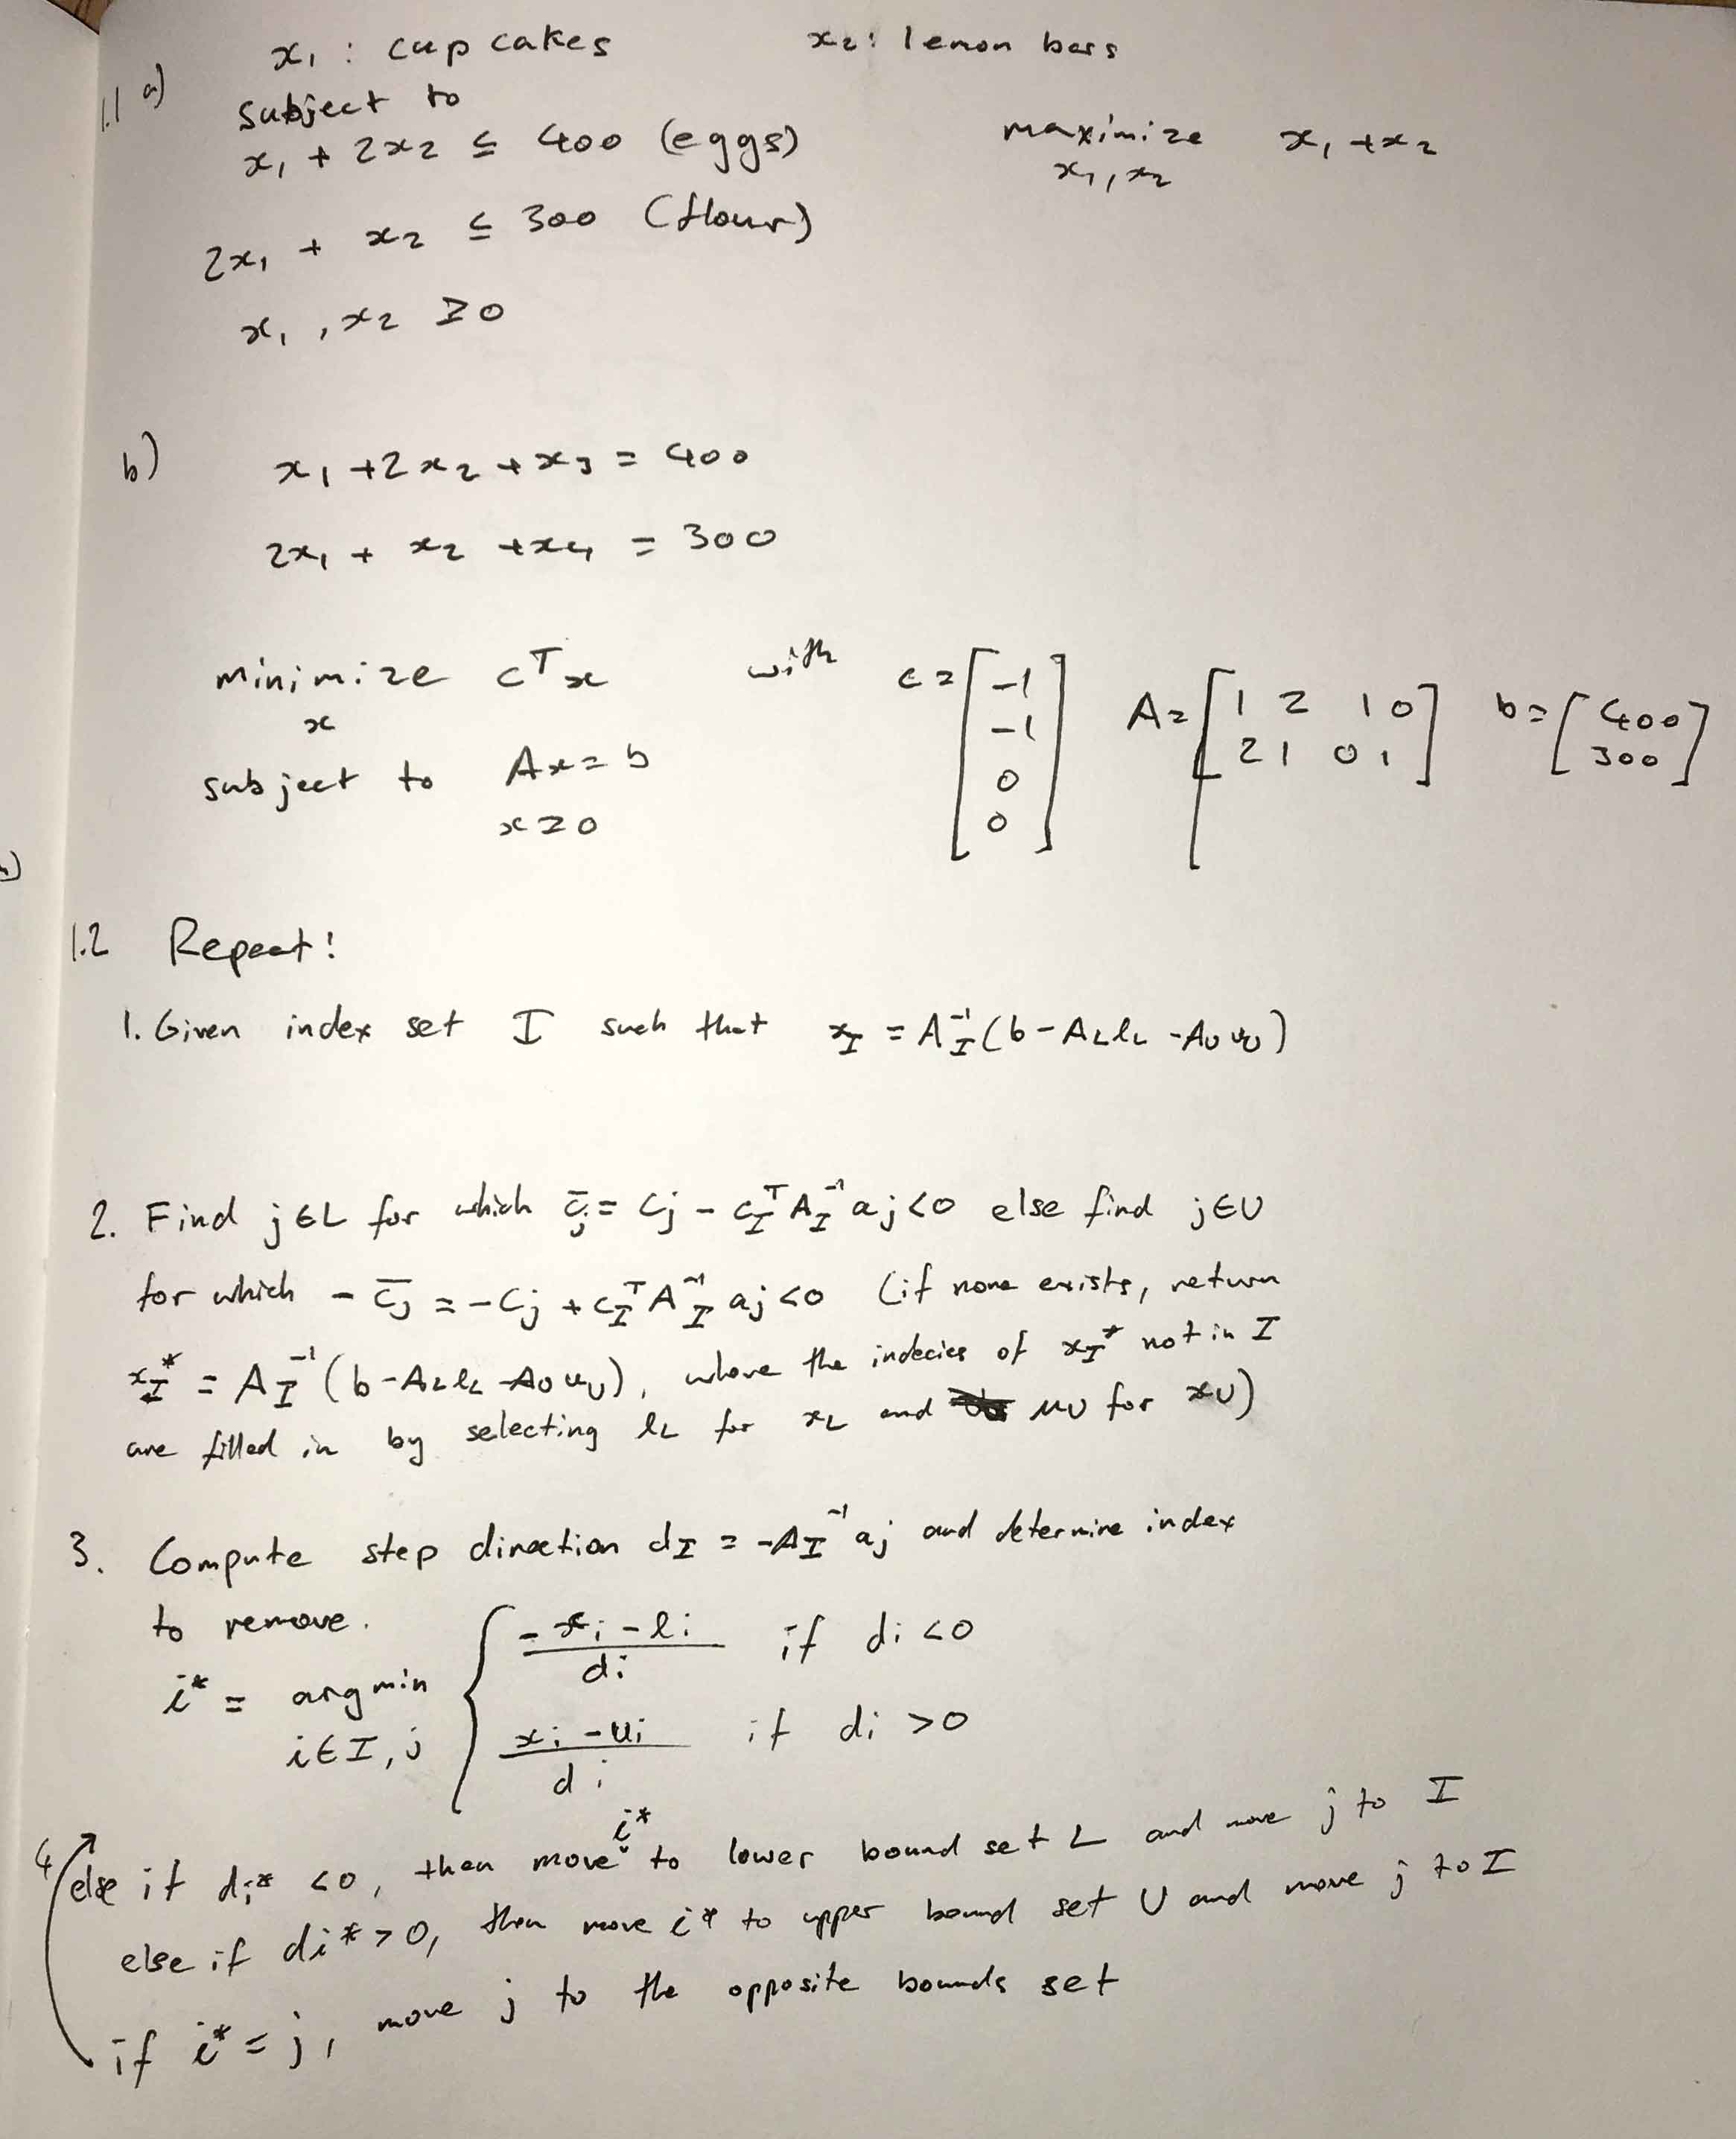 x₁ : cupcakes    x₂ : lemon bars
1.1 a) subject to
maximize x₁ + x₂
x₁, x₂
x₁ + 2x₂ ≤ 400 (eggs)
2x₁ + x₂ ≤ 300 (flour)
x₁, x₂ ≥ 0
b) x₁ + 2x₂ + x₃ = 400
2x₁ + x₂ + x₄ = 300
minimize cᵀx with c = [-1 -1 0 0] A = [1 2 1 0; 2 1 0 1] b = [400 300]
x
subject to Ax = b
x ≥ 0
1.2 Repeat!
1. Given index set I such that x_I = A_I⁻¹(b - A_L l_L - A_U u_U)
2. Find j ∈ L for which c̄_j = c_j - c_Iᵀ A_I⁻¹ a_j < 0 else find j ∈ U
for which - c̄_j = -c_j + c_Iᵀ A_I⁻¹ a_j < 0 (if none exists, return
x_I* = A_I⁻¹(b - A_L l_L - A_U u_U), where the indecies of x_I* not in I
are filled in by selecting l_L for x_L and u_U for x_U)
3. Compute step direction d_I = -A_I⁻¹ a_j and determine index
to remove.
i* = argmin { - x_i - l_i / d_i if d_i < 0
i ∈ I, j { x_i - u_i / d_i if d_i > 0
4. else if d_i* < 0, then move i* to lower bound set L and move j to I
else if d_i* > 0, then move i* to upper bound set U and move j to I
if i* = j, move j to the opposite bounds set